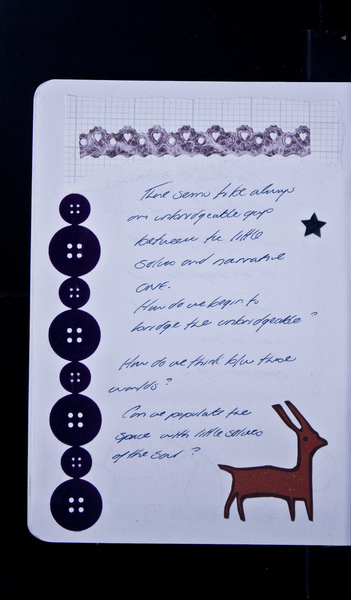 There seems to be always
an unbridgeable gap
between the little
selves and narrative
one.
How do we begin to
bridge the unbridgeable?
How do we think b/w those
worlds?
Can we populate the
space with little selves
of the soul?